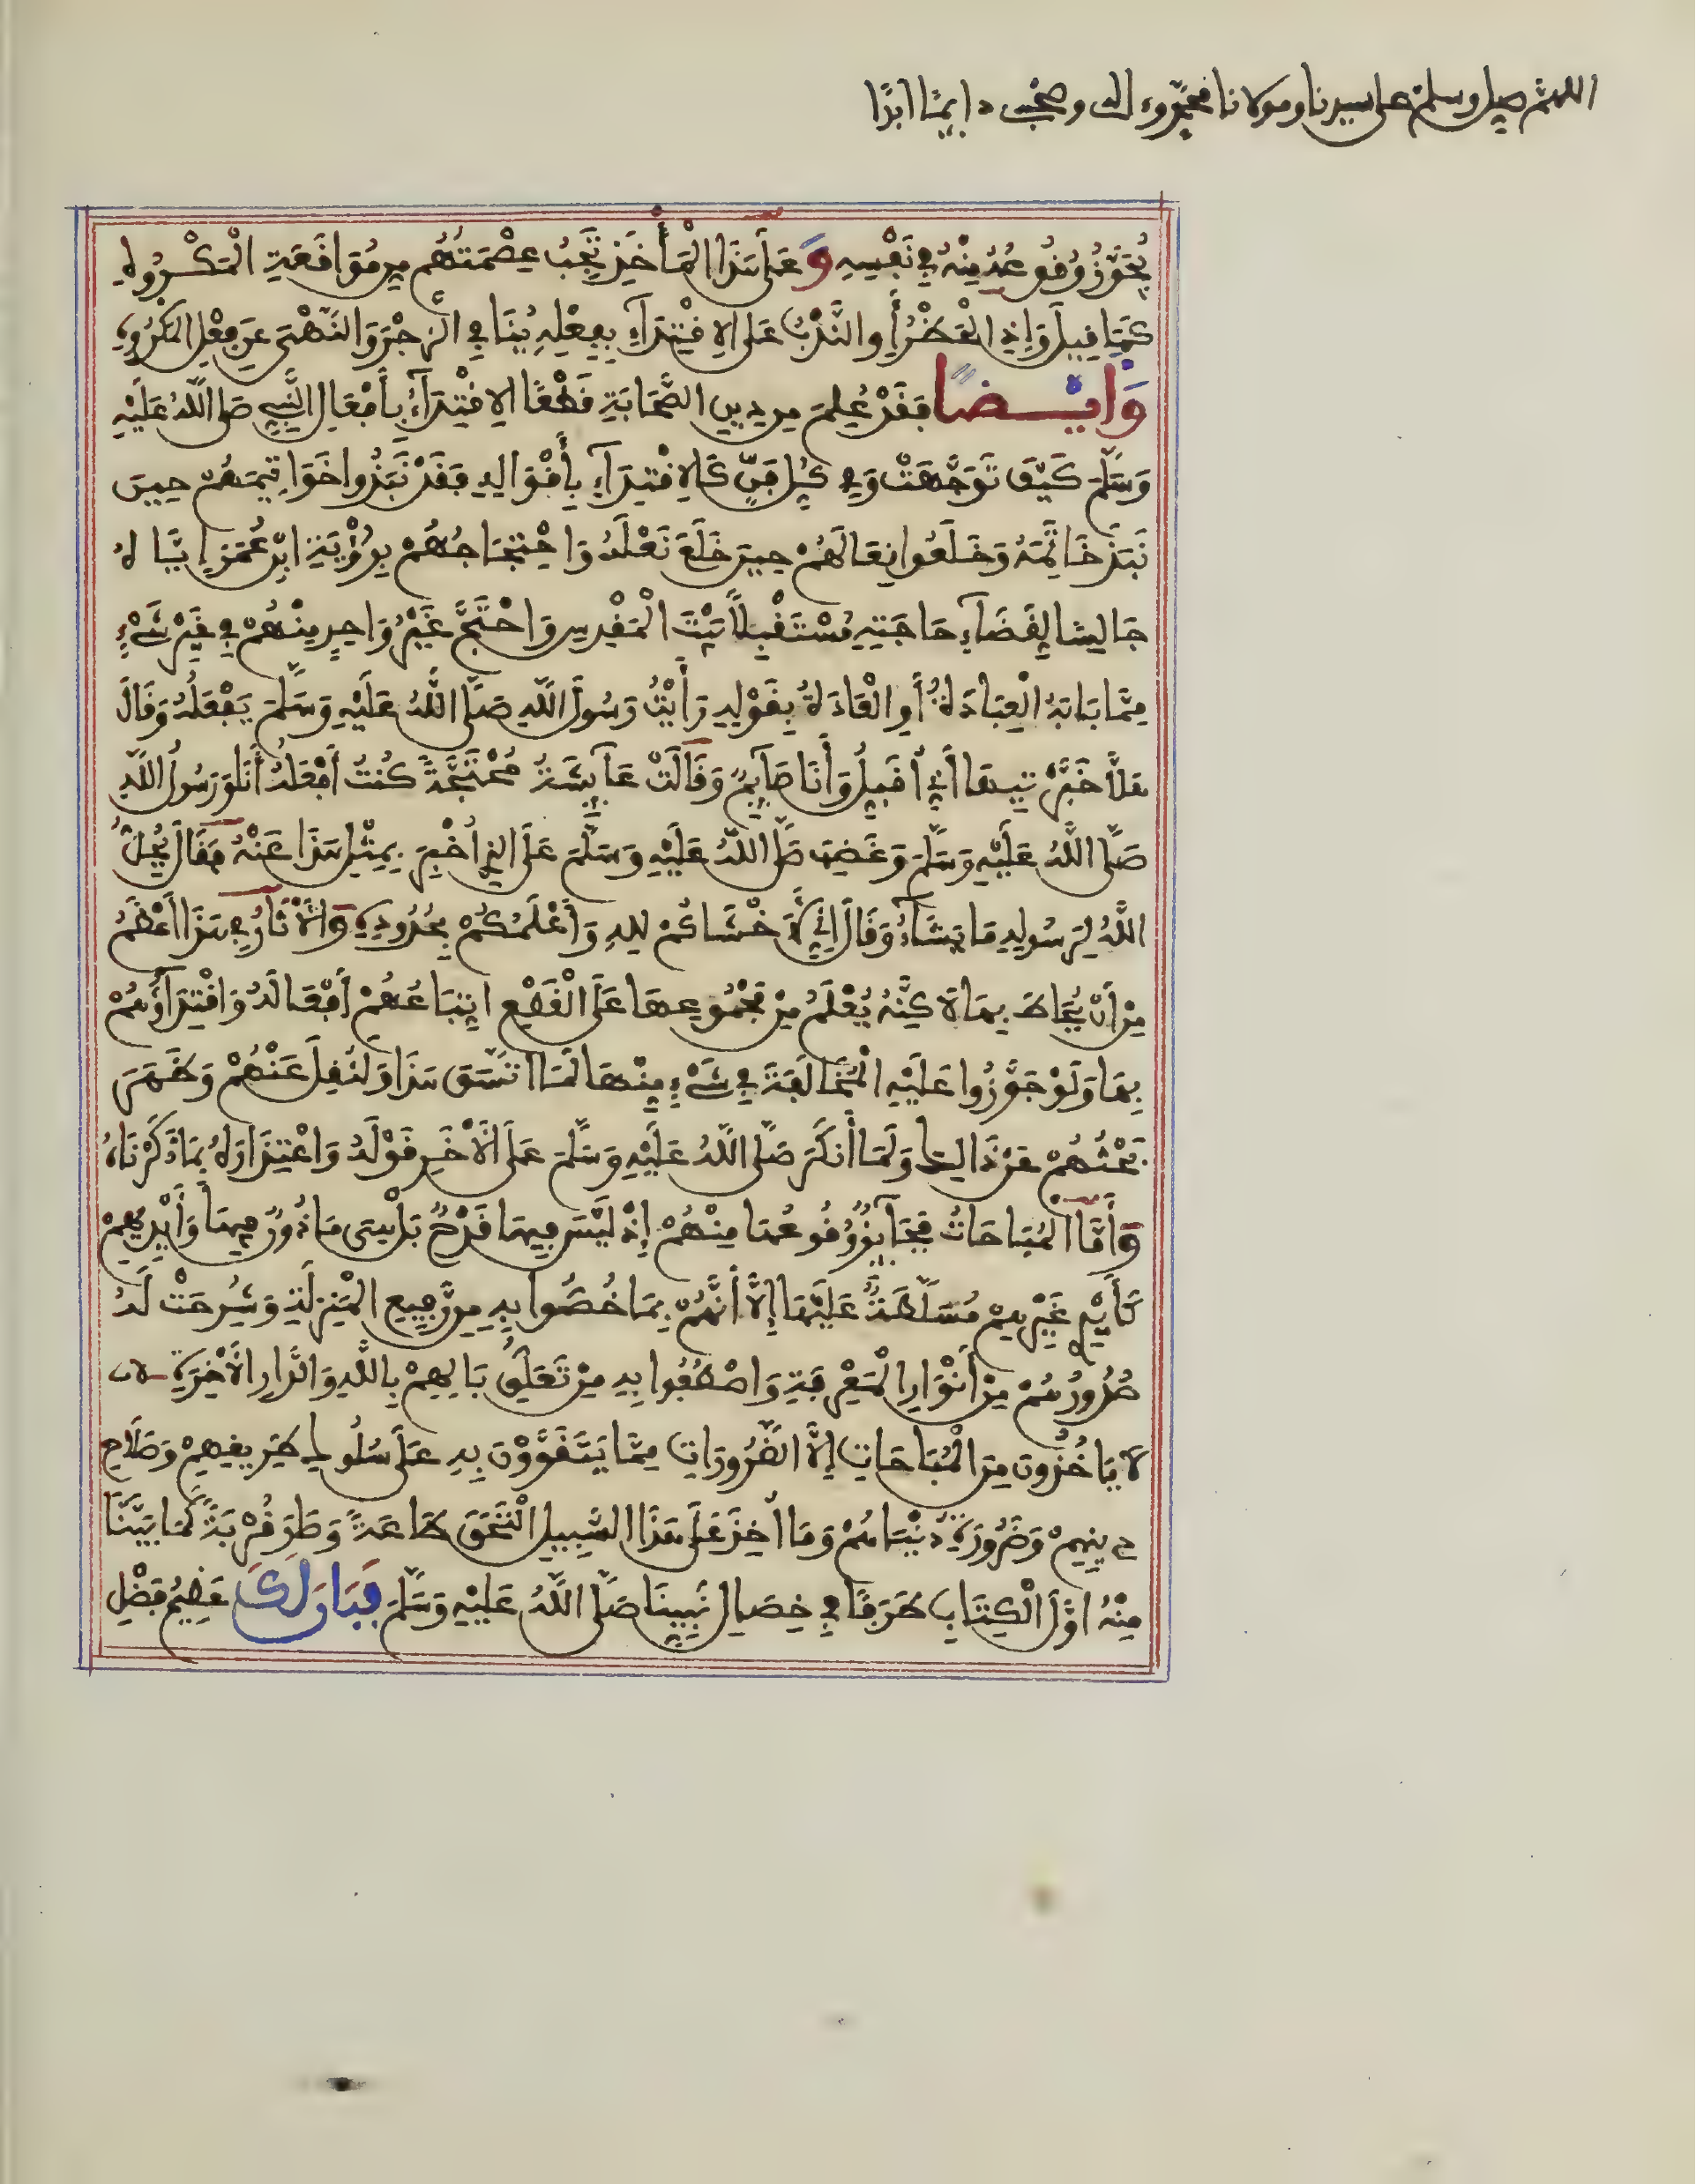 اللهم صل وسلم على سيدنا ومولانا محمد وءاله وصحبه دايما ابدا
يُجَوِّزُ وُقُوعُهُ مِنْهُ فِي نَفْسِهِ وَعَلَى هَذَا الْمَأْخَذِ تَجِبُ عِصْمَتُهُم مِن مُوَاقَعَةِ الْمَكْرُوهِ
كَمَا قِيلَ وَإِذِ الْحَظْرُ أَوِ النَّدْبُ عَلَى الِاقْتِدَاءِ بِفِعْلِهِ يُنَافِي الزَّجْرَ وَالنَّهْيَ عَن فِعْلِ الْمَكْرُوهِ
وَأَيْضًا فَقَدْ عُلِمَ مِن دِينِ الصَّحَابَةِ قَطْعًا الِاقْتِدَاءُ بِأَفْعَالِ النَّبِيِّ صَلَّى اللَّهُ عَلَيْهِ
وَسَلَّمَ كَيْفَ تَوَجَّهَتْ وَفِي كُلِّ فَنٍّ كَالِاقْتِدَاءِ بِأَقْوَالِهِ فَقَدْ نَبَذُوا خَوَاتِيمَهُمْ حِينَ
نَبَذَ خَاتَمَهُ وَخَلَعُوا نِعَالَهُمْ حِينَ خَلَعَ نَعْلَهُ وَاحْتِجَاجُهُمْ بِرُؤْيَةِ ابْنِ عُمَرَ إِيَّاهُ
جَالِسًا لِقَضَاءِ حَاجَتِهِ مُسْتَقْبِلًا بَيْتَ الْمَقْدِسِ وَاحْتَجَّ غَيْرُ وَاحِدٍ مِنْهُمْ فِي غَيْرِ شَيْءٍ
مِمَّا بَابُهُ الْعِبَادَةُ أَوِ الْعَادَةُ بِقَوْلِهِ رَأَيْتُ رَسُولَ اللَّهِ صَلَّى اللَّهُ عَلَيْهِ وَسَلَّمَ يَفْعَلُهُ وَقَالَ
هَلَّا خَبَّرْتِيهَا أَنِّي أُقَبِّلُ وَأَنَا صَايِمٌ وَقَالَتْ عَايِشَةُ مُحْتَجَّةً كُنْتُ أَفْعَلُهُ أَنَا وَرَسُولُ اللَّهِ
صَلَّى اللَّهُ عَلَيْهِ وَسَلَّمَ وَغَضِبَ صَلَّى اللَّهُ عَلَيْهِ وَسَلَّمَ عَلَى الذِي أُخْبِرَ بِمِثْلِ هَذَا عَنْهُ فَقَالَ يُحِلُّ
اللَّهُ لِرَسُولِهِ مَا يَشَاءُ وَقَالَ إِنِّي لَأَخْشَاكُمْ لِلهِ وَأَعْلَمُكُمْ بِحُدُودِهِ وَالْآثَارُ فِي هَذَا أَعْظَمُ
مِنْ أَنْ يُحَاطَ بِهَا لَكِنَّهُ يُعْلَمُ مِنْ مَجْمُوعِهَا عَلَى الْقَطْعِ اتِّبَاعُهُمْ أَفْعَالَهُ وَاقْتِدَاؤُهُمْ
بِهَا وَلَوْ جَوَّزُوا عَلَيْهِ الْمُخَالَفَةَ فِي شَيْءٍ مِنْهَا لَمَا اتَّسَقَ هَذَا وَلَنُقِلَ عَنْهُمْ وَظَهَرَ
بَحْثُهُمْ عَنْ ذَالِكَ وَلَمَا أَنْكَرَ صَلَّى اللَّهُ عَلَيْهِ وَسَلَّمَ عَلَى الْآخَرِ قَوْلَهُ وَاعْتِذَارَهُ بِمَا ذَكَرْنَاهُ
وَأَمَّا الْمُبَاحَاتُ فَجَايِزٌ وُقُوعُهَا مِنْهُمْ إِذْ لَيْسَ فِيهَا قَدْحٌ بَلْ هِيَ مَاذُونٌ فِيهَا وَأَيْدِيهِمْ
كَأَيْدِي غَيْرِهِمْ مُسَلَّطَةٌ عَلَيْهَا إِلَّا أَنَّهُمْ بِمَا خُصُّوا بِهِ مِنْ رَفِيعِ الْمَنْزِلَةِ وَشُرِحَتْ لَهُ
صُدُورُهُمْ مِنْ أَنْوَارِ الْمَعْرِفَةِ وَاصْطُفُوا بِهِ مِنْ تَعَلُّقِ بَالِهِمْ بِاللَّهِ وَالدَّارِ الْآخِرَةِ
لَا يَاخُذُونَ مِنَ الْمُبَاحَاتِ إِلَّا الضَّرُورَاتِ مِمَّا يَتَقَوَّوْنَ بِهِ عَلَى سُلُوكِ طَرِيقِهِمْ وَصَلَاحِ
دِينِهِمْ وَضَرُورَةِ دُنْيَاهُمْ وَمَا أُخِذَ عَلَى هَذَا السَّبِيلِ الْتَحَقَ طَاعَةً وَصَارَ قُرْبَةً كَمَا بَيَّنَّا
مِنْهُ أَوَّلَ الْكِتَابِ طَرَفًا فِي خِصَالِ نَبِيِّنَا صَلَّى اللَّهُ عَلَيْهِ وَسَلَّمَ فَبَانَ لَكَ عَظِيمُ فَضْلِ